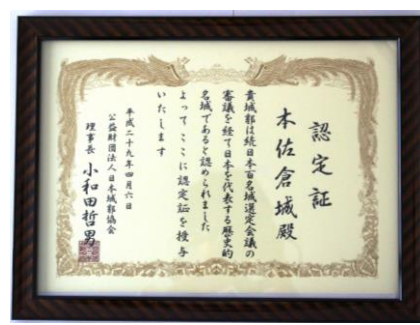 認定証
本佐倉城殿
貴城郭は続日本百名城選定会議の
審議を経て日本を代表する歴史的
名城であると認められました
よってここに認定証を授与
いたします
平成二十九年四月六日
公益財団法人日本城郭協会
理事長 小和田哲男